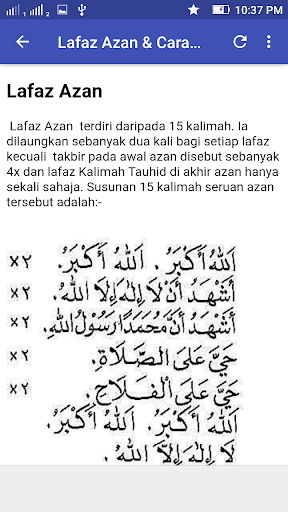 10:37 PM
Lafaz Azan & Cara...
Lafaz Azan
Lafaz Azan terdiri daripada 15 kalimah. Ia
dilaungkan sebanyak dua kali bagi setiap lafaz
kecuali takbir pada awal azan disebut sebanyak
4x dan lafaz Kalimah Tauhid di akhir azan hanya
sekali sahaja. Susunan 15 kalimah seruan azan
tersebut adalah:-
اَللهُ أَكْبَرُ . اَللهُ أَكْبَرُ. ×٢
أَشْهَدُ أَنْ لَا إِلٰهَ إِلَّا اللهُ. ×٢
أَشْهَدُ أَنَّ مُحَمَّدًا رَسُوْلُ اللهِ. ×٢
حَيَّ عَلَى الصَّلَاةِ. ×٢
حَيَّ عَلَى الْفَلَاحِ. ×٢
اَللهُ أَكْبَرُ. اَللهُ أَكْبَرُ.
لَا إِلٰهَ إِلَّا اللهُ.